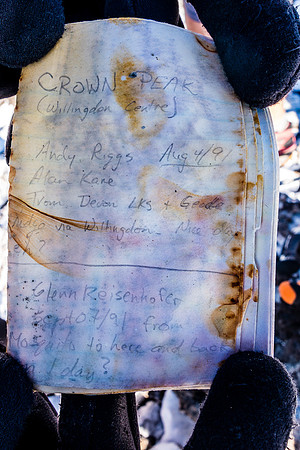 CROWN PEAK
(Willingdon Centre)
Andy Riggs Aug 4/91
Alan Kane
From Devon Lks +
via Willingdon. Nice
?
Glenn Reisenhofer
Sept 07/91 from
to here and back
in 1 day?